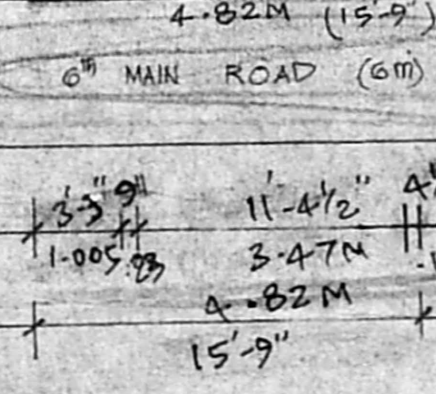 4.82M (15'-9"
6th MAIN ROAD (6m)
3'-3" 9" 11'-4½" 4"
1.005 .23 3.47M
4.82M
15'-9"